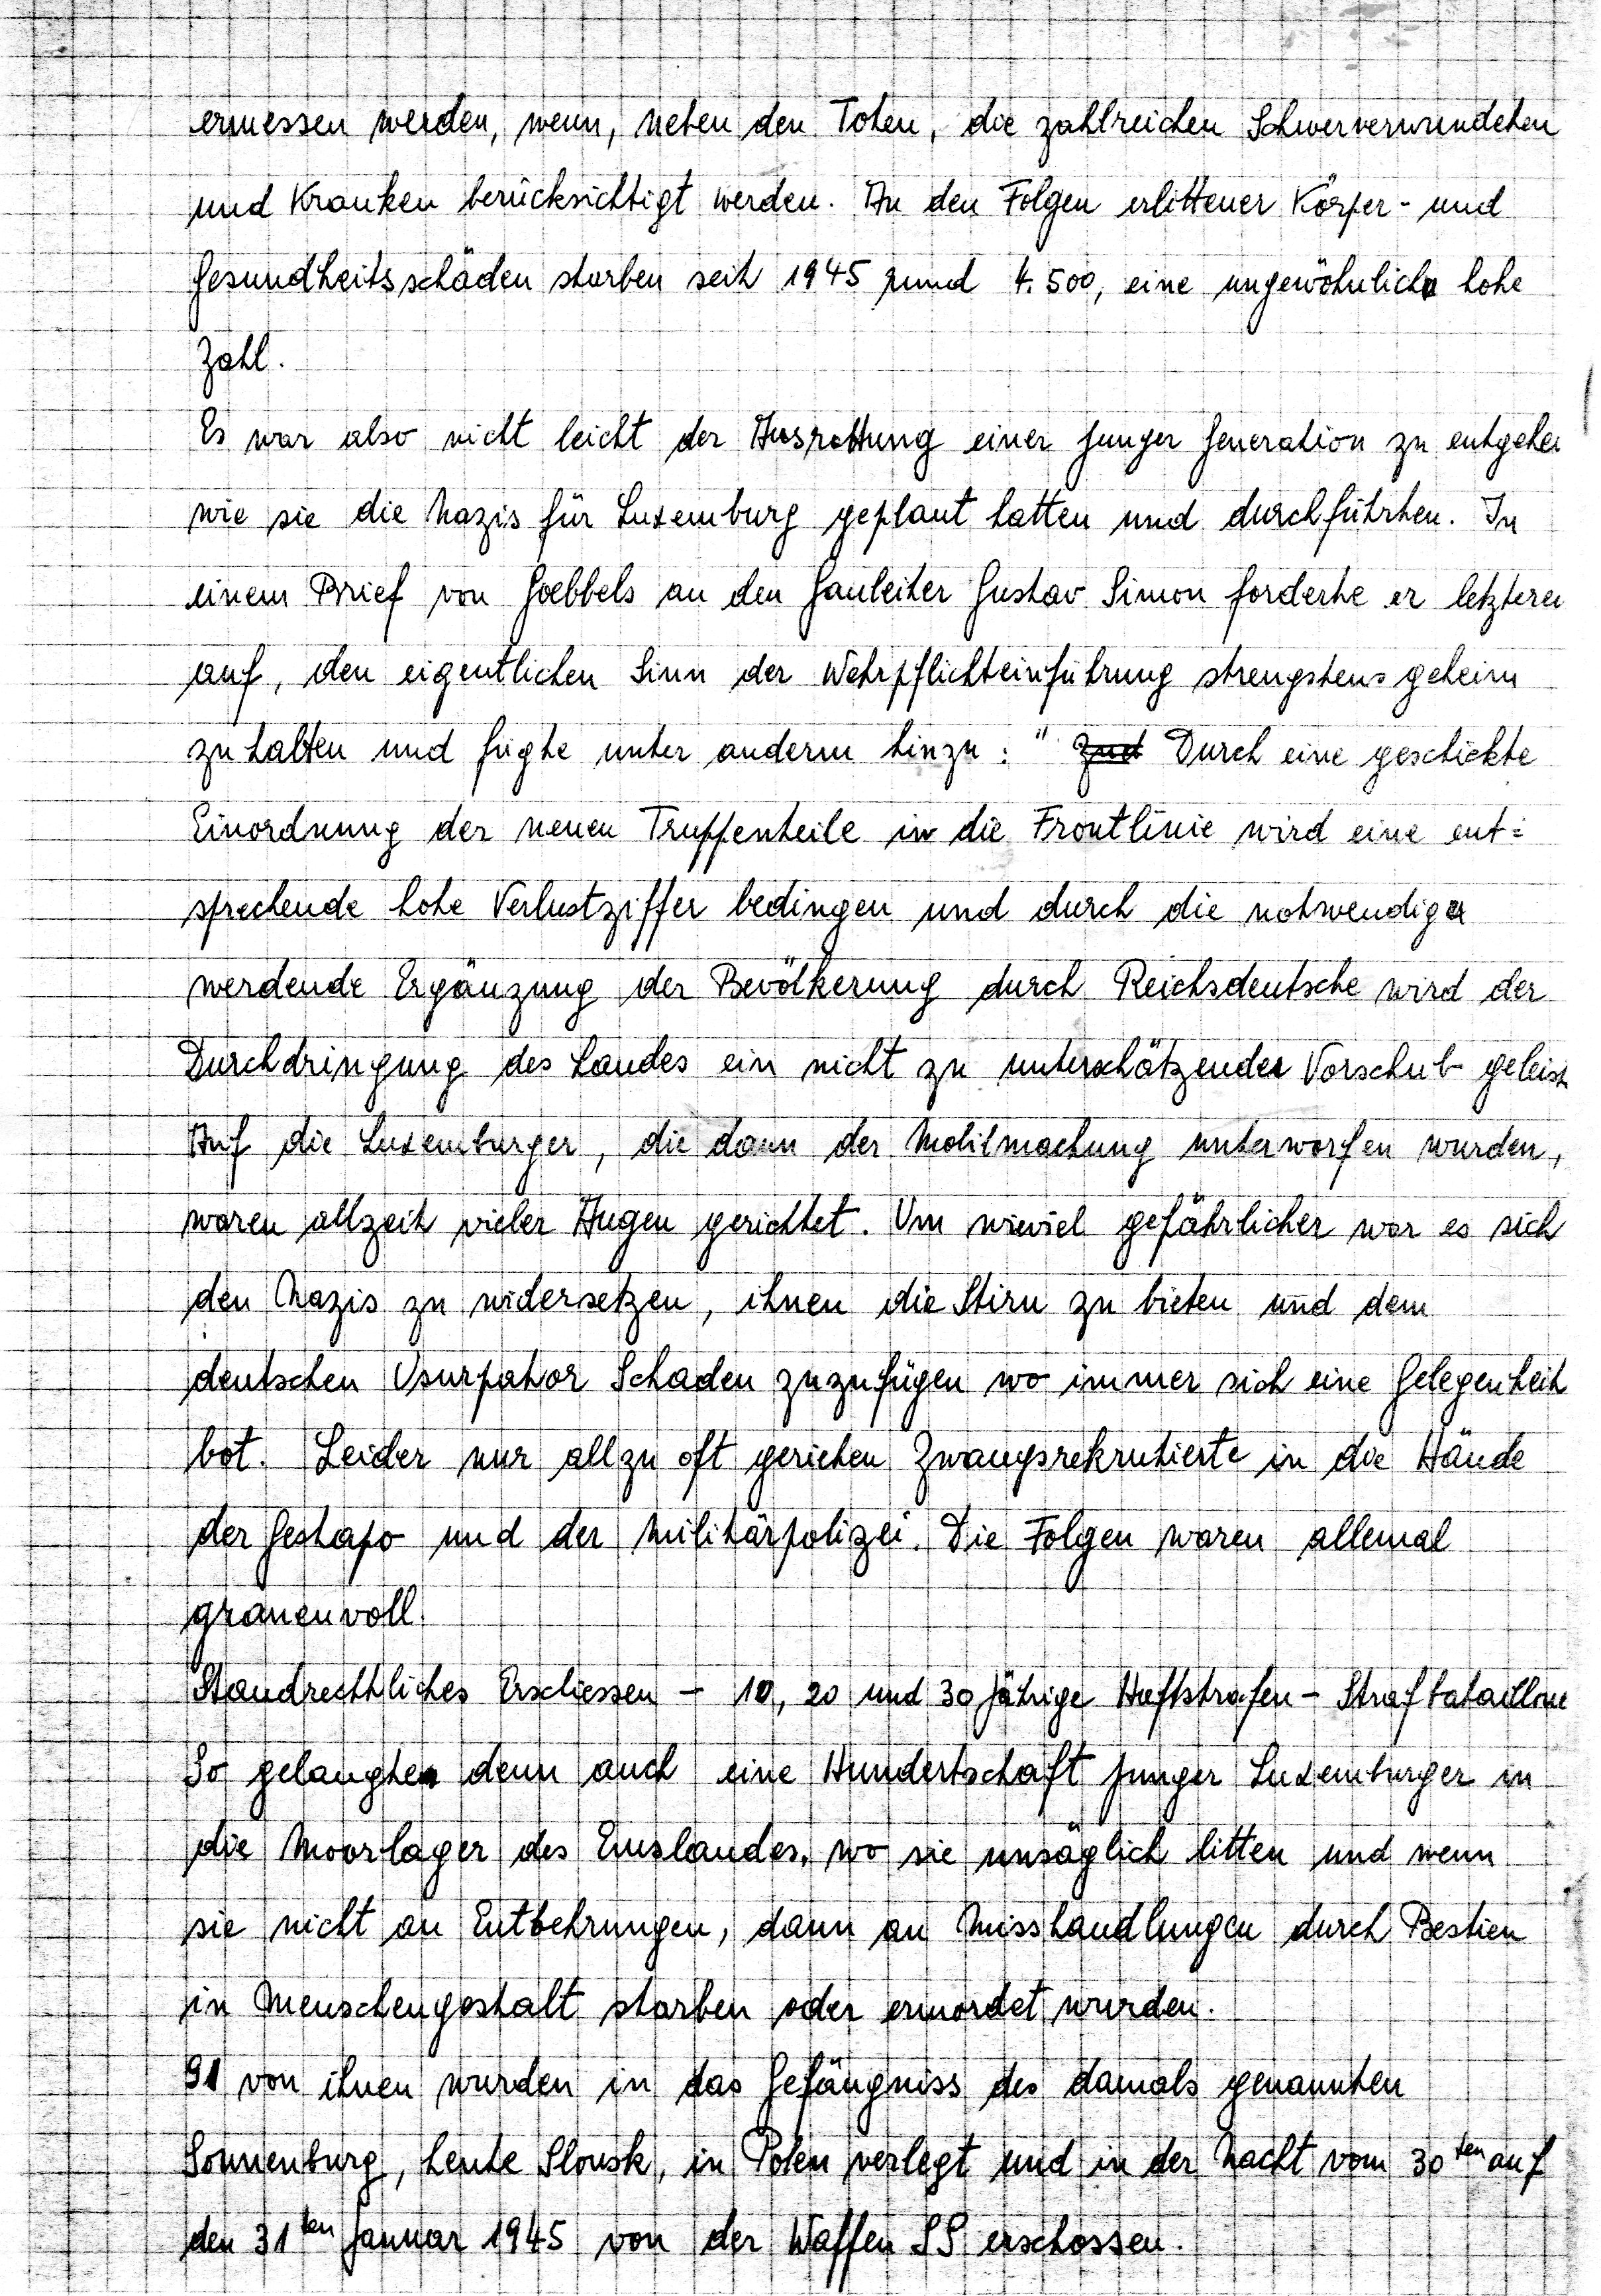 ermessen werden, wenn, neben den Toten, die zahlreichen Schwerverwundeten
und Kranken berücksichtigt werden. An den Folgen erlittener Körper- und
Gesundheitsschäden starben seit 1945 rund 4.500, eine ungewöhnlich hohe
Zahl.
Es war also nicht leicht der Ausrottung einer junger Generation zu entgehen
wie sie die Nazis für Luxemburg geplant hatten und durchführten. In
einem Brief von Goebbels an den Gauleiter Gustav Simon forderte er letzteren
auf, den eigentlichen Sinn der Wehrpflichteinführung strengstens geheim
zu halten und fügte unter anderm hinzu: " Durch eine geschickte
Einordnung der neuen Truppenteile in die Frontlinie wird eine ent=
sprechende hohe Verlustziffer bedingen und durch die notwendig
werdende Ergänzung der Bevölkerung durch Reichsdeutsche wird der
Durchdringung des Landes ein nicht zu unterschätzender Vorschub geleist
Auf die Luxemburger, die dann der Mobilmachung unterworfen wurden,
waren allzeit vieler Augen gerichtet. Um wieviel gefährlicher war es sich
den Nazis zu widersetzen, ihnen die Stirn zu bieten und dem
deutschen Usurpator Schaden zuzufügen wo immer sich eine Gelegenheit
bot. Leider nur allzu oft gerieten Zwangsrekrutierte in die Hände
der Gestapo und der Militärpolizei. Die Folgen waren allemal
grauenvoll.
Standrechtliches Erschiessen - 10, 20 und 30 jährige Haftstrafen - Strafbataillone
So gelangten denn auch eine Hundertschaft junger Luxemburger in
die Moorlager des Emslandes, wo sie unsäglich litten und wenn
sie nicht an Entbehrungen, dann an Misshandlungen durch Bestien
in Menschengestalt starben oder ermordet wurden.
91 von ihnen wurden in das Gefängniss des damals genannten
Sonnenburg, heute Slonsk, in Polen verlegt und in der Nacht vom 30ten auf
den 31ten Januar 1945 von der Waffen SS erschossen.